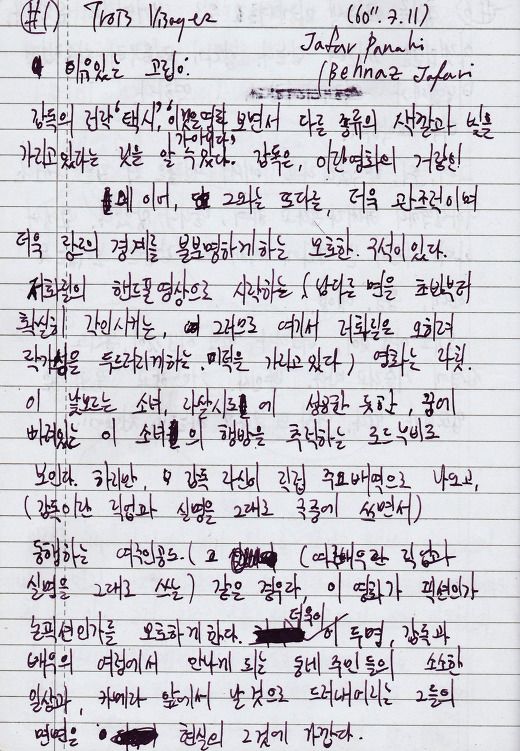 #1) Trois Visages (60". 7.11)
Jafar Panahi
이유있는 고립 Behnaz Jafari
감독의 전작 '택시', '이것은 영화가 아니다' 보면서 다른 종류의 색깔과 빛을
가리고 있다는 것을 알 수 있다. 감독은, 이란영화의 거장인
에 이어, 그와는 또다른 더욱 관조적이며
더욱 장르의 경계를 불분명하게 하는 모호한 구석이 있다.
저화질의 핸드폰 영상으로 시작하는 (남다른 면을 초반부터
확실히 각인시키는, 그러므로 여기서 저화질은 오히려
작가성을 두드러지게하는 미덕을 가리고 있다) 영화는 마치
이 낯모르는 소녀, 자살시도에 성공한 듯한, 꿈에
버려있는 이 소녀의 행방을 추적하는 로드무비로
보인다. 하지만, 감독 자신이 직접 주요배역으로 나오고,
(감독이란 직업과 실명을 그대로 극중에 쓰면서)
동행하는 여주인공도 (여주배우란 직업과
실명을 그대로 쓰는) 같은 경우라, 이 영화가 픽션인가
논픽션인가를 모호하게 한다. 더욱이 이 두명, 감독과
배우의 여정에서 만나게 되는 동네 주민들의 소소한
일상과, 카메라 앞에서 날 것으로 드러내어지는 그들의
면면을 현실의 그것에 가깝다.